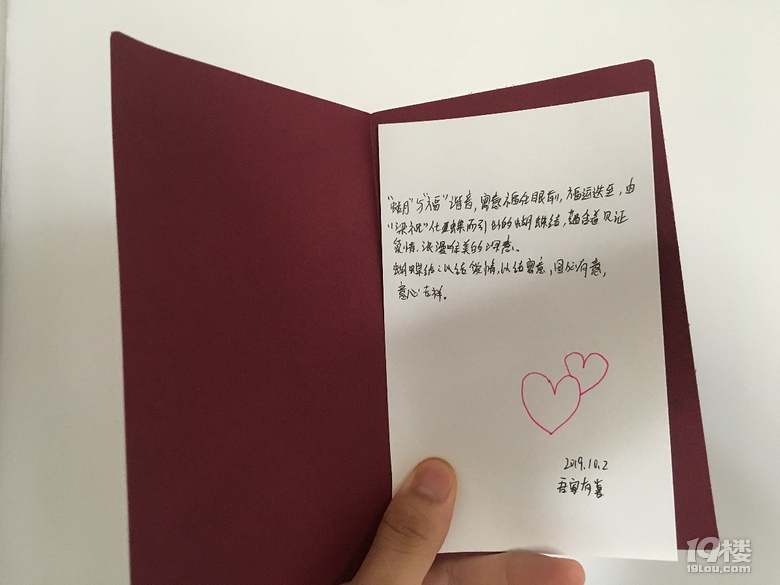 "蝴"与"福"谐音,寓意福在眼前,福运迭至,由
"梁祝"化蝶而引出的蝴蝶结,蕴含着见证
爱情.浪漫唯美的寓意。
蝴蝶结:以结饰情,以结寓意,图必有意,
意必吉祥。
2019.10.2
吾家有喜
19楼
19lou.com